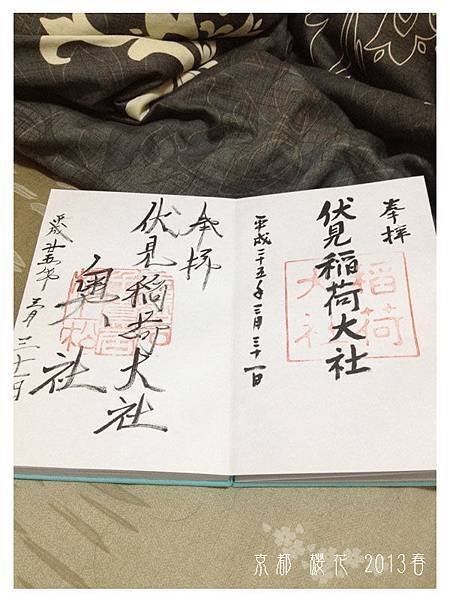 奉拝
伏見稲荷大社
平成二十五年三月三十一日
稲荷
大社
奉拝
伏見稲荷大社
奥社
平成廿五年三月三十一日
京都 櫻花 2013春